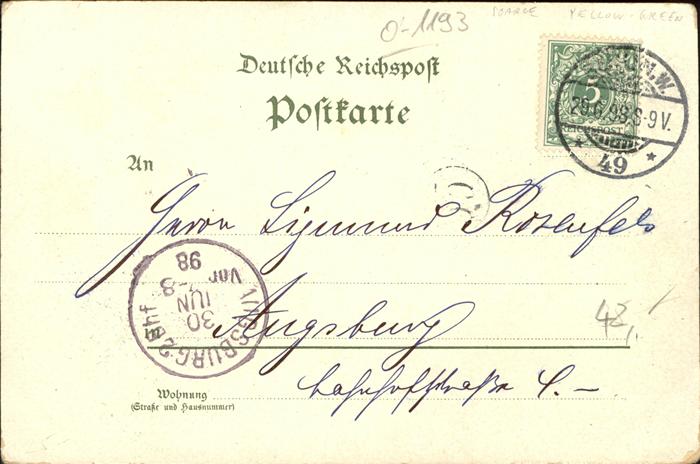 O-1193
SCARCE YELLOW-GREEN
Deutsche Reichspost
Postkarte
5
REICHSPOST
N.W.
29.6.98.8-9V.
* 49 *
An
Herrn Sigmund Rosenfels
98
Vor 7-8
30 JUN
AUGSBURG 2 Bhf
Augsburg
48,-
Bahnhofstraße
Wohnung
(Straße und Hausnummer)